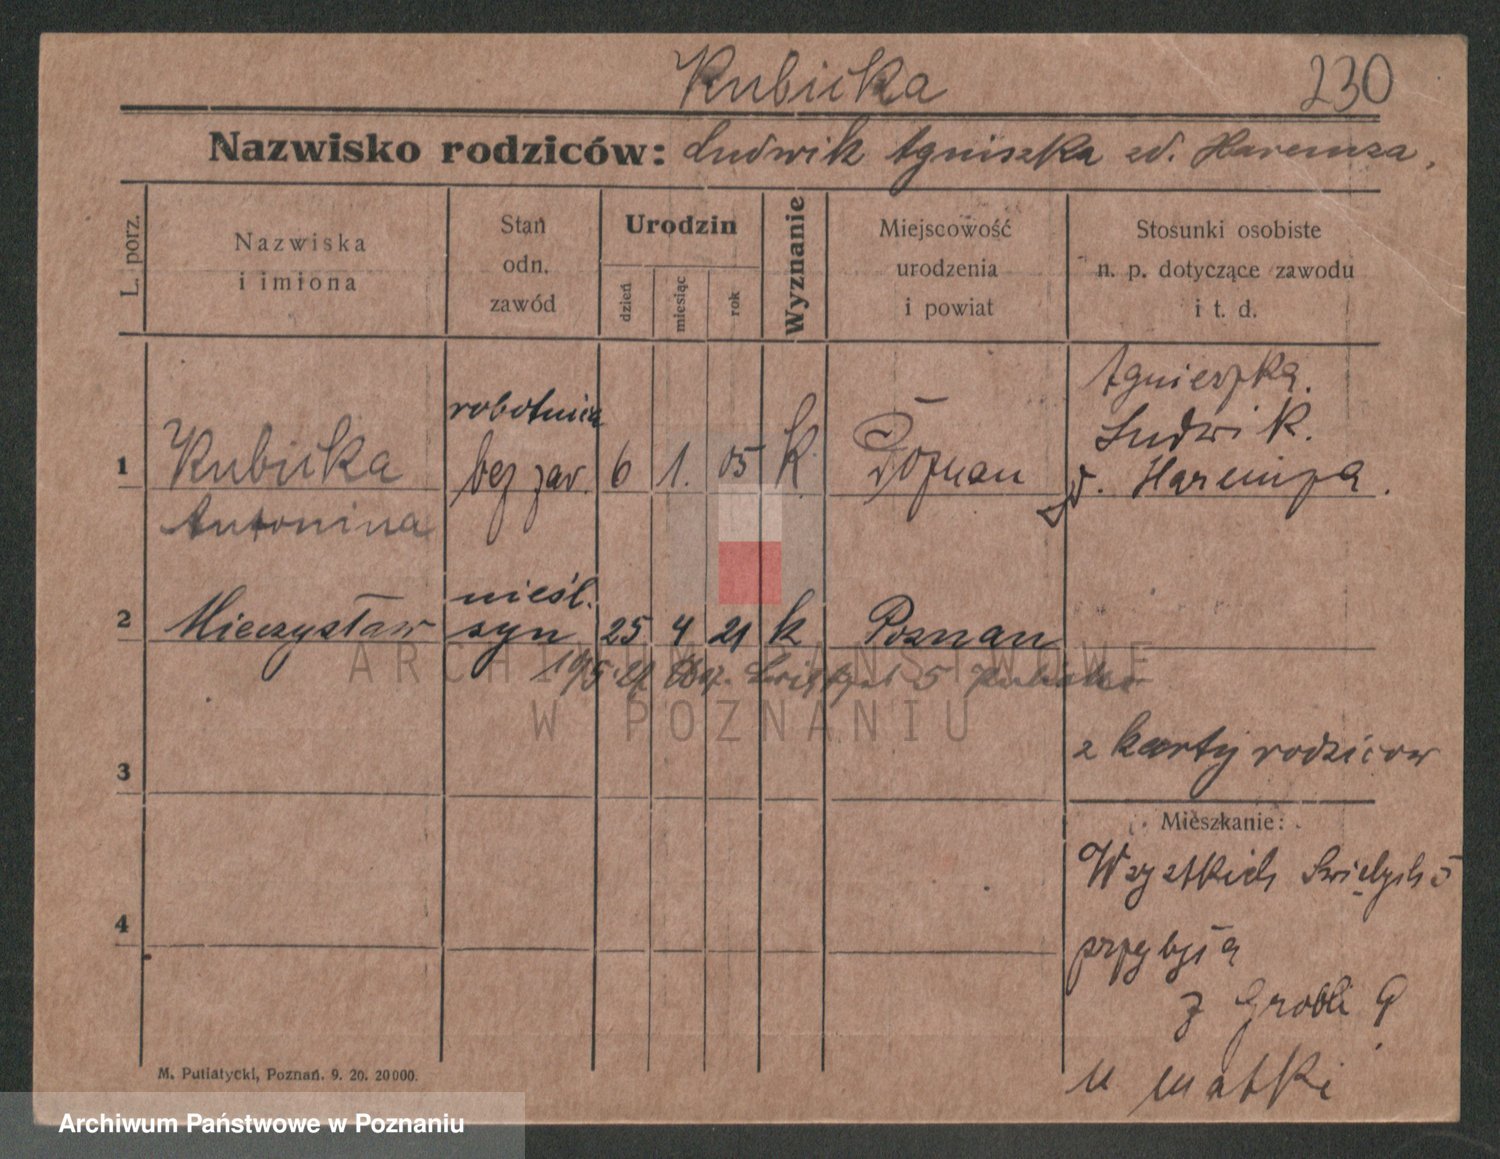 Kubicka 230
Nazwisko rodziców: Ludwik Agniszka zd. Haremza.
L. porz.
Nazwiska
i imiona
Stan
odn.
zawód
Urodzin
dzień
miesiąc
rok
Wyznanie
Miejscowość
urodzenia
i powiat
Stosunki osobiste
n. p. dotyczące zawodu
i t. d.
Agnieszka.
Ludwik.
zd. Haremza.
robotnica
1 Kubicka bez zaw. 6 1. 05 K. Poznan
Antonina
nieśl.
2 Mieczysław syn 25 4 21 k Poznan
Kubicka
ARCHIWUM PAŃSTWOWE
W POZNANIU
z karty rodzicow
3
Mieszkanie:
Wszystkich Świętych 5
przybyła
4
z Grobli 9
u matki
M. Putiatycki, Poznań. 9. 20. 20000.
Archiwum Państwowe w Poznaniu